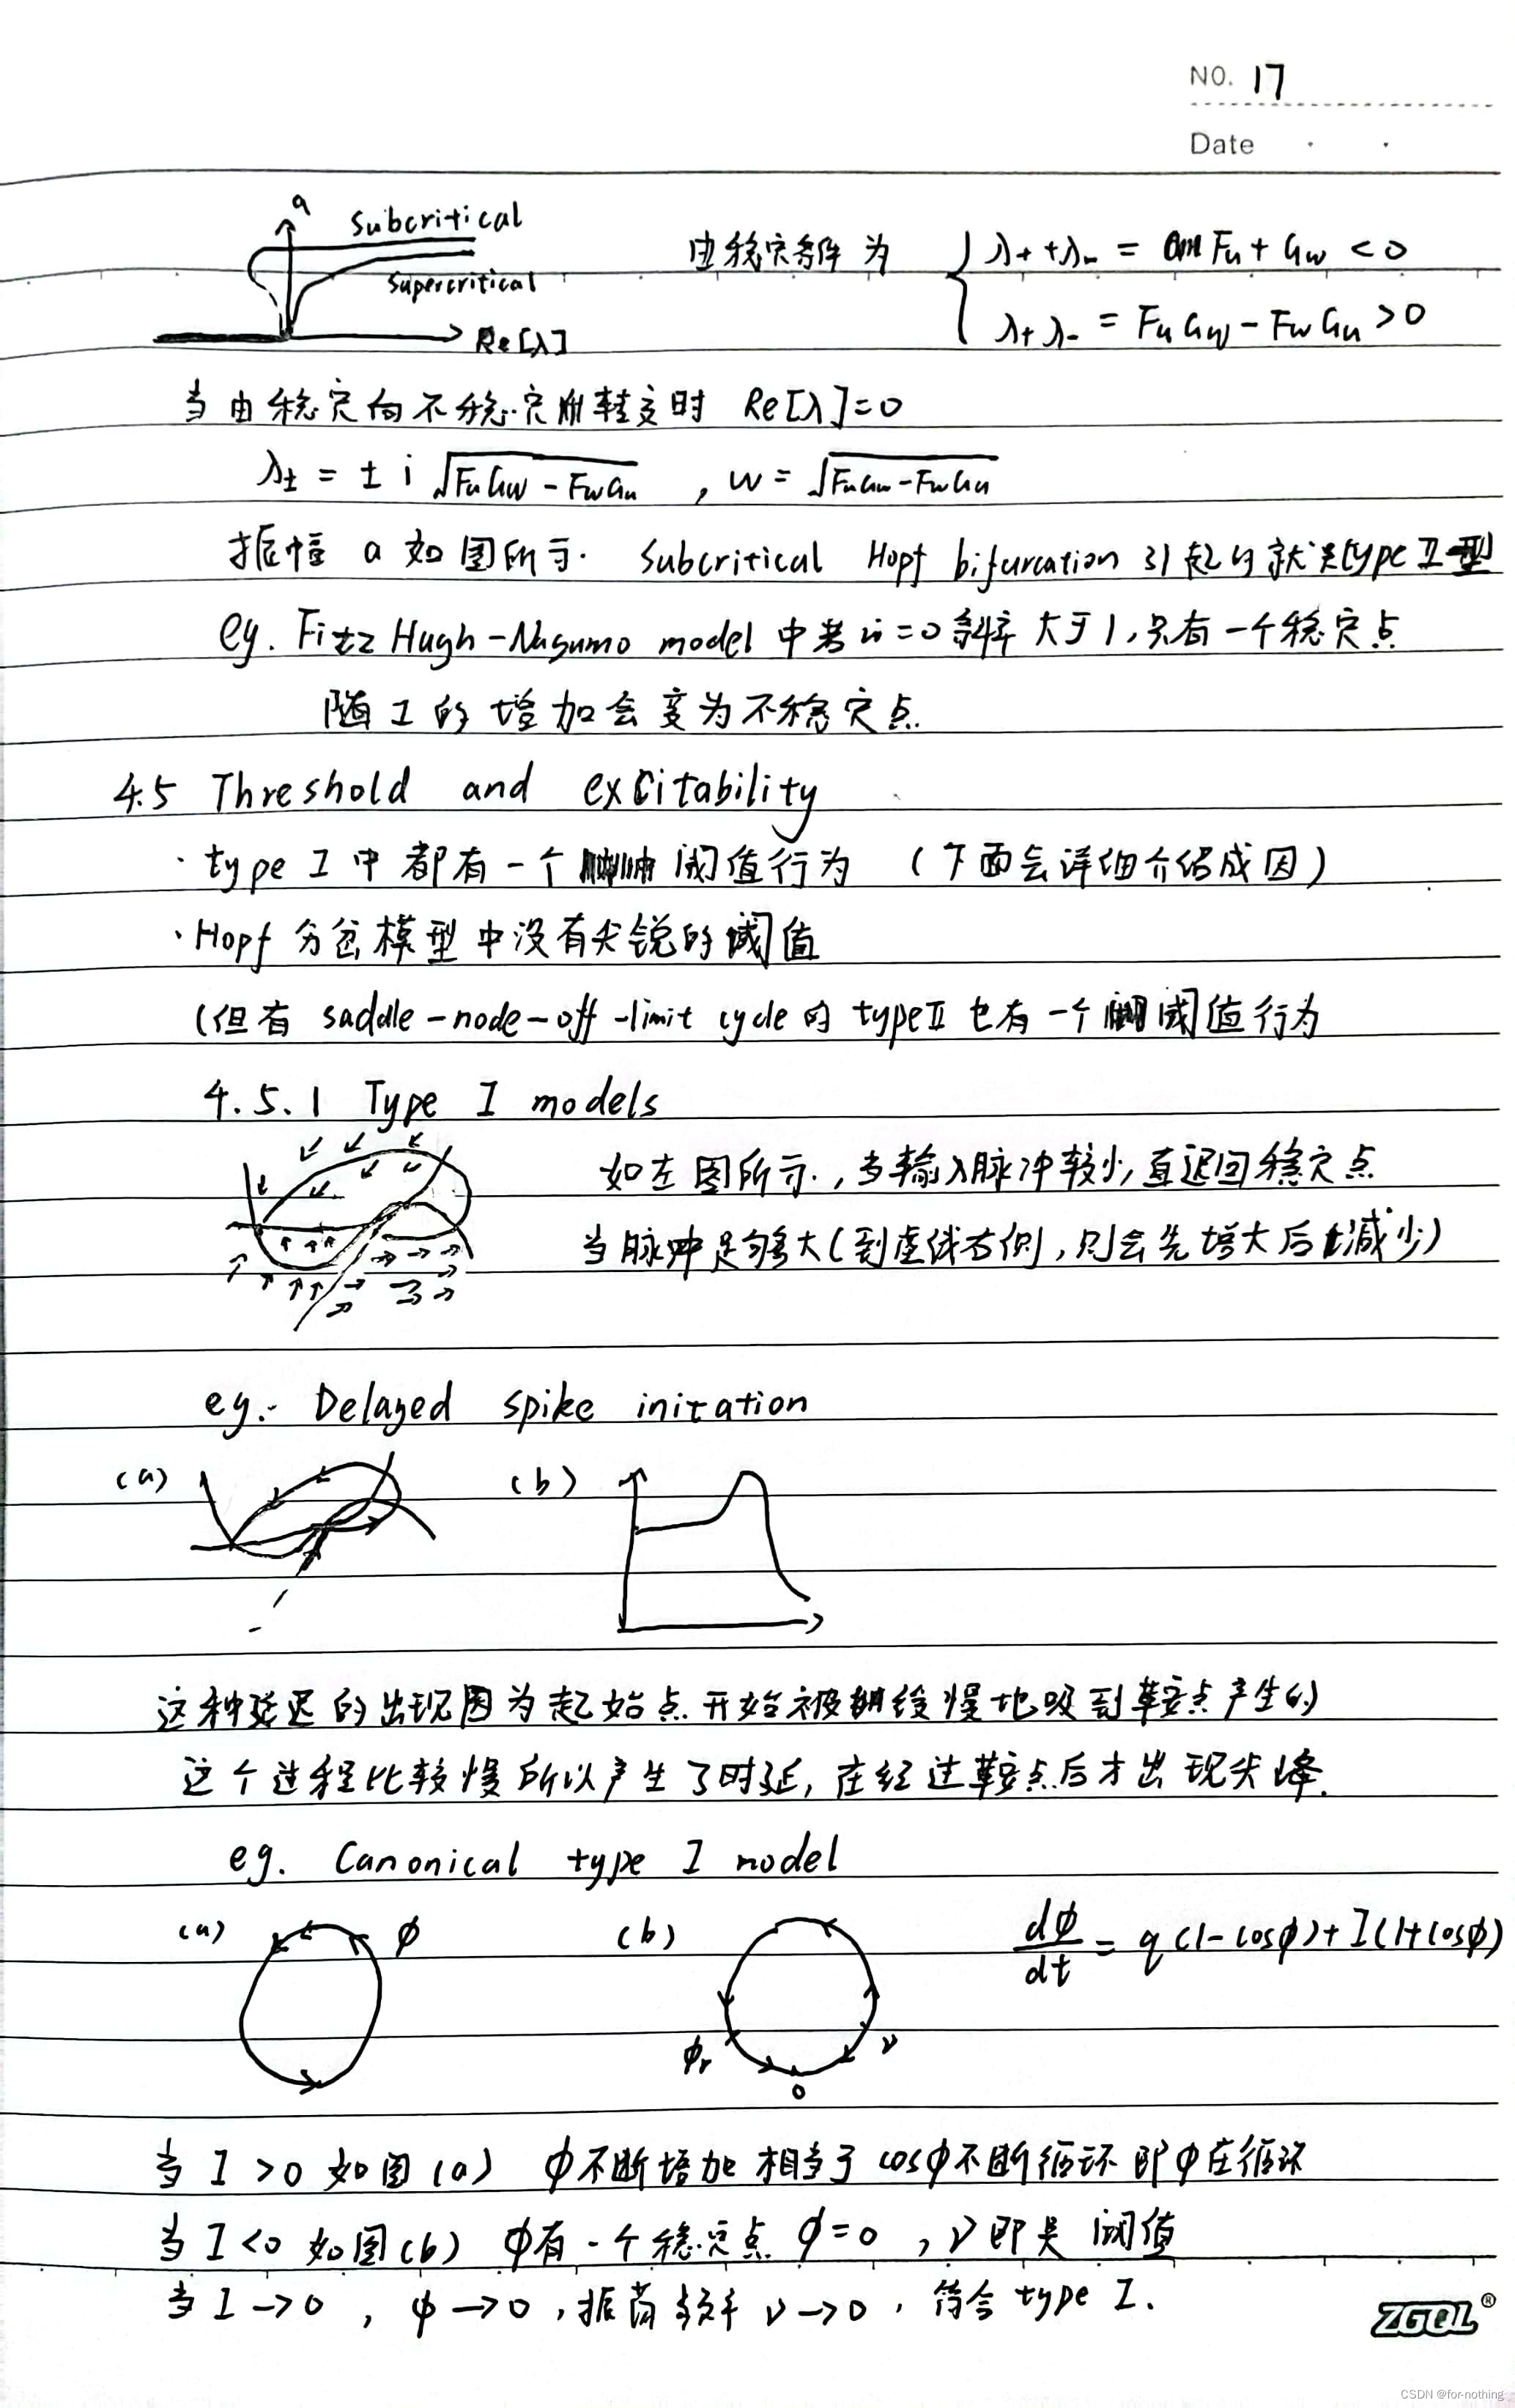 NO. 17
Date
a
Subcritical
Supercritical
Re[λ]
由稳定条件为
λ+ + λ- = Fu + Gw < 0
λ+ λ- = Fu Gw - Fw Gu > 0
当由稳定向不稳定刚转变时 Re[λ]=0
λ± = ± i √(Fu Gw - Fw Gu) , w = √(Fu Gw - Fw Gu)
振幅 a 如图所示. Subcritical Hopf bifurcation 引起的就是type II型
eg. FitzHugh-Nagumo model 中若 ẇ=0 斜率 大于1,只有一个稳定点
随 I 的 增加会变为不稳定点.
4.5 Threshold and excitability
· type I 中 都有一个 阈值行为 (下面会详细介绍成因)
· Hopf 分岔模型中没有尖锐的阈值
(但有 saddle-node-off-limit cycle 的 type II 也有一个 阈值行为
4.5.1 Type I models
如左图所示, 当输入脉冲较小,直返回稳定点
当脉冲足够大(到虚线右侧, 则会先增大后减少)
eg. Delayed spike initation
(a)
(b)
这种延迟的出现因为起始点开始被缓慢地吸到鞍点产生的
这个过程比较慢所以产生了时延, 在经过鞍点后才出现尖峰.
eg. Canonical type I model
(a) ϕ
(b)
dϕ/dt = q(1-cosϕ)+I(1+cosϕ)
ϕr
ν
0
当 I >0 如图(a) ϕ不断增加 相当于 cosϕ不断循环 即ϕ在循环
当 I <0 如图(b) ϕ有一个稳定点 ϕ=0 , ν 即是 阈值
当 I → 0 , ϕ → 0 , 振荡频率 ν → 0 , 符合 type I.
ZGQL®
CSDN @for-nothing